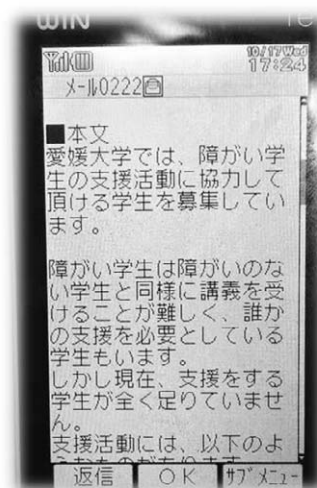 WIN
10/17Wed
17:24
メール0222
■本文
愛媛大学では、障がい学
生の支援活動に協力して
頂ける学生を募集してい
ます。
障がい学生は障がいのな
い学生と同様に講義を受
けることが難しく、誰か
の支援を必要としている
学生もいます。
しかし現在、支援をする
学生が全く足りていませ
ん。
支援活動には、以下のよ
返信 OK サブメニュー